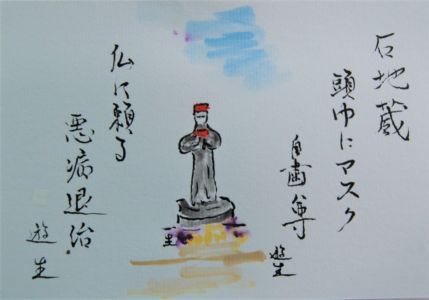 石地蔵
頭巾にマスク
自歯尊
遊生
仏に願う
悪病退治
遊生